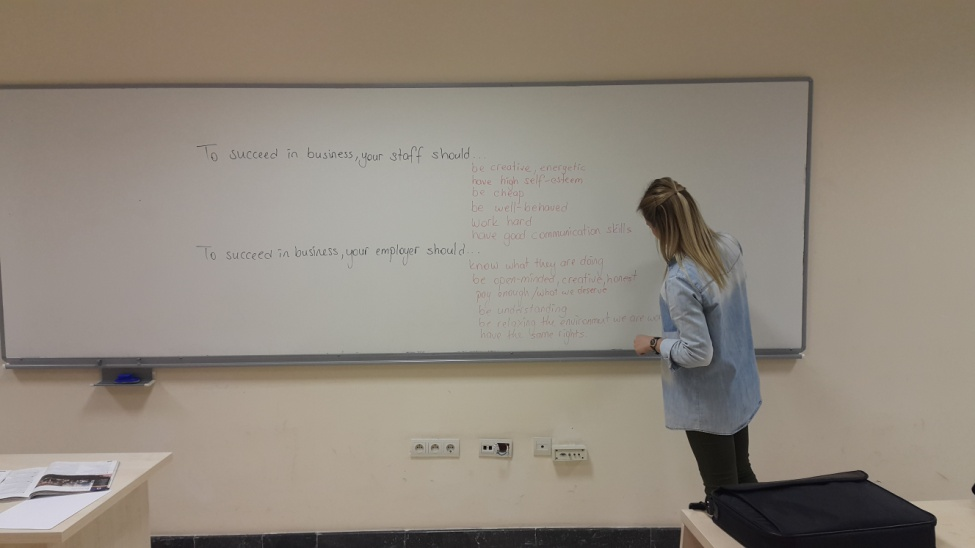 To succeed in business, your staff should...
be creative, energetic
have high self-esteem
be cheap
be well-behaved
work hard
have good communication skills
To succeed in business, your employer should...
know what they are doing
be open-minded, creative, honest
pay enough/what we deserve
be understanding
be relaxing the environment we are
have the same rights